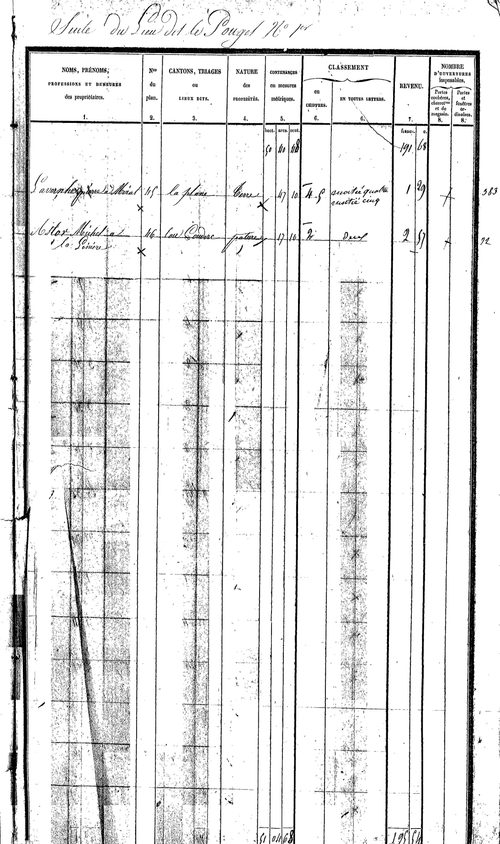 Suite du Lieu dit le Pouget No 1er
NOMS, PRÉNOMS,
PROFESSIONS ET DEMEURES
des propriétaires.
1.
Nos
du
plan.
2.
CANTONS, TRIAGES
ou
LIEUX DITS.
3.
NATURE
des
PROPRIÉTÉS.
4.
CONTENANCES
en mesures
métriques.
5.
CLASSEMENT
en
CHIFFRES.
6.
EN TOUTES LETTRES.
6.
REVENU.
7.
NOMBRE
D'OUVERTURES
imposables.
Portes
cochères,
charret.res
et de
magasin.
8.
Portes
et
fenêtres
ordinaires.
8.
hect. ares. cent. francs. c.
50 40 68 191 68
à Moral 45 la plaine terre 47 10 4. 5 moitié quatre 1 29 383
moitié cinq
Astor Michel a 46 pature 17 10 2 Deux 2 57 22
51 04 68 195 54